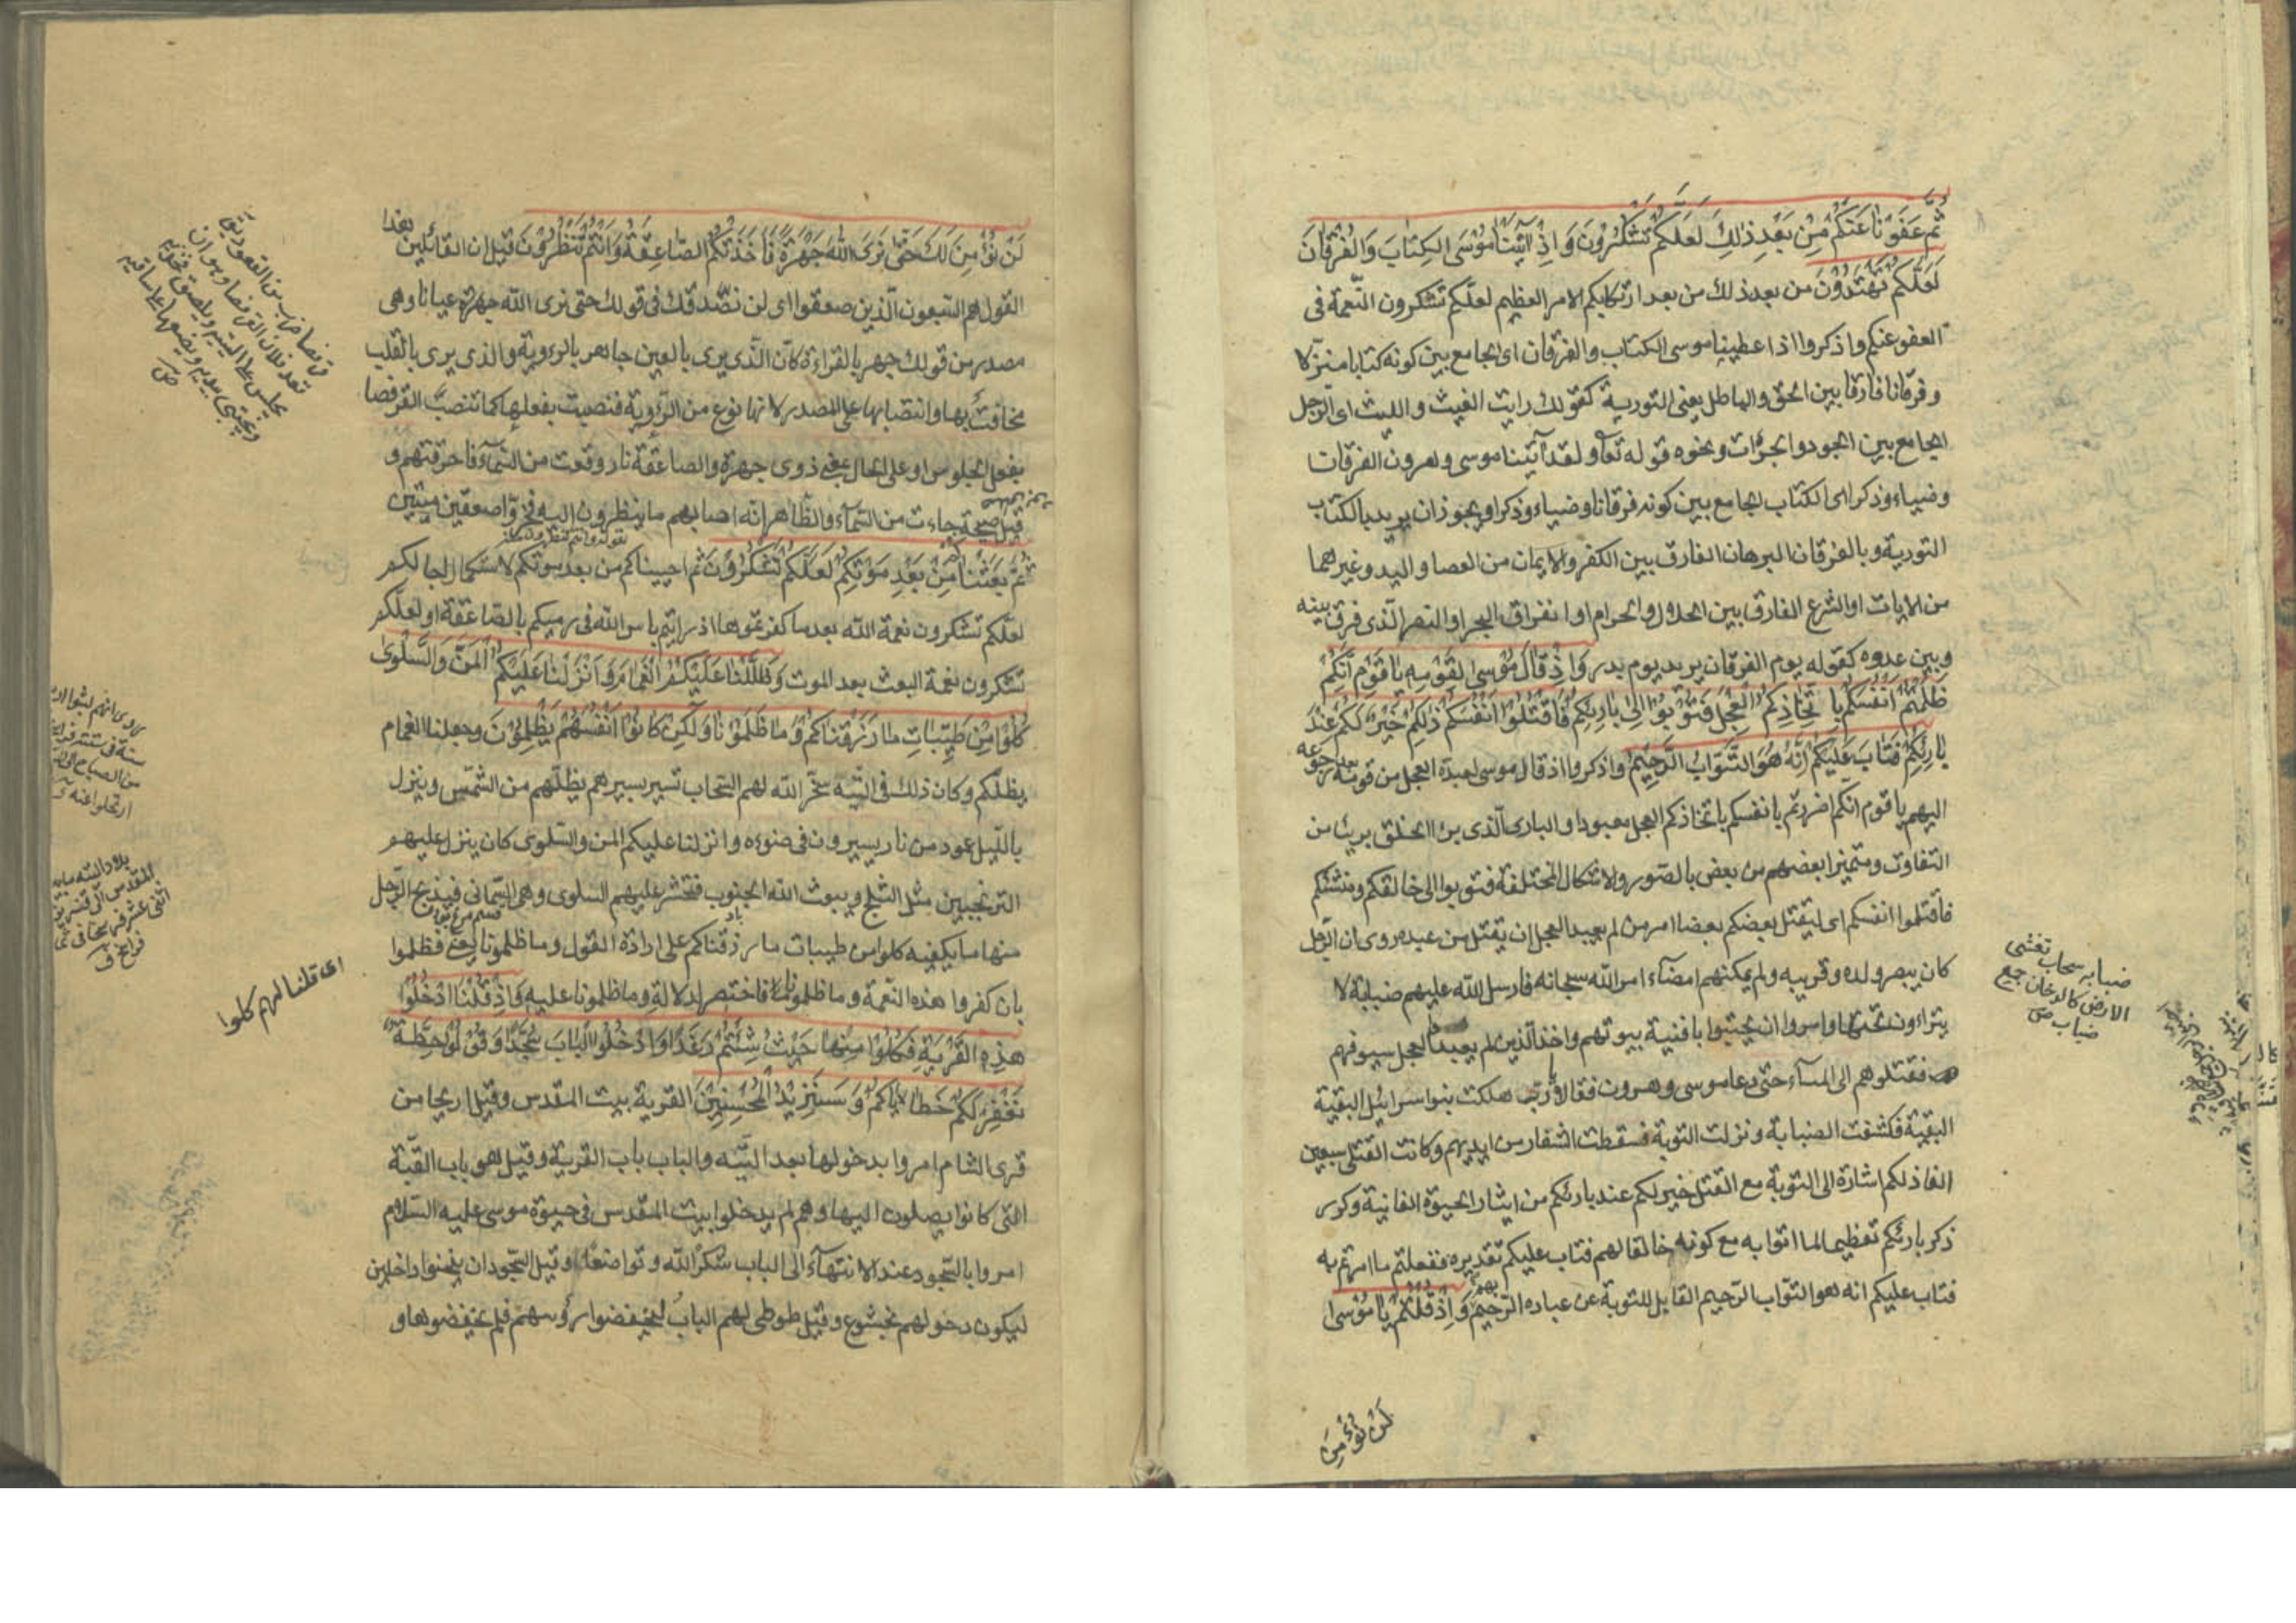 ثُمَّ عَفَوْنَا عَنْكُمْ مِنْ بَعْدِ ذٰلِكَ لَعَلَّكُمْ تَشْكُرُونَ وَاِذْ اٰتَيْنَا مُوسَى الكِتَابَ وَالْفُرْقَانَ
لَعَلَّكُمْ تَهْتَدُوْنَ من بعد ذلك من بعد ارتكابكم الامر العظيم لعلّكم تشكرون النّعمة فى
العفو عنكم واذكروا اذ اعطينا موسى الكتاب والفرقان اى الجامع بين كونه كتابا منزّلا
وفرقانا فارقا بين الحق والباطل يعنى التورية كقولك رايت الغيث والليث اى الرّجل
الجامع بين الجود والجرٔات ونحوه قوله تعا ولقد آتينا موسى وهرون الفرقان
وضياء وذكرا اى الكتاب الجامع بين كونه فرقانا وضياء وذكرا ويجوز ان يريد بالكتاب
التورية وبالفرقان البرهان الفارق بين الكفر والايمان من العصا واليد وغيرهما
من الايات او الشرع الفارق بين الحلال والحرام او انفراق البحر او النصر الّذى فرق بينه
وبين عدوه كقوله يوم الفرقان يريد يوم بدر وَاِذْ قَالَ مُوْسى لِقَوْمِهِ يَا قَوْمِ اِنَّكُمْ
ظَلَمْتُمْ اَنْفُسَكُمْ بِاتِّخَاذِكُمُ الْعِجْلَ فَتُوْبُوْا اِلىٰ بَارِئِكُمْ فَاقْتُلُوْا اَنْفُسَكُمْ ذٰلِكُمْ خَيْرٌ لَكُمْ عِنْدَ
بَارِئِكُمْ فَتَابَ عَلَيْكُمْ اِنَّهُ هُوَ التَّوَّابُ الرَّحِيْمُ واذكروا اذ قال موسى لعبدة العجل من قومه بعد رجوعه
اليهم يا قوم انكم اضررتم بانفسكم باتخاذكم العجل معبودا والبارى الّذى برء الخلق بريئا من
التفاوت ومتميزا بعضهم من بعض بالصّور والاشكال المختلفة فتوبوا الى خالقكم ومنشئكم
فاقتلوا انفسكم اى ليقتل بعضكم بعضا امر من لم يعبد العجل ان يقتل من عبده روى ان الرّجل
كان يبصر ولده وقريبه ولم يمكنهم امضآء امر الله سبحانه فارسل الله عليهم ضبابة لا
يتراءون تحتها وامروا ان يحتبوا بافنية بيوتهم واخذ الذين لم يعبدوا العجل سيوفهم
فقتلوهم الى المسآء حتى دعا موسى وهرون فقالا يا رب هلكت بنوا اسرائيل البقية
البقية فكشفت الضبابة ونزلت التوبة فسقطت الشفار من ايديهم وكانت القتلى سبعين
الفا ذلكم اشارة الى التوبة مع القتل خير لكم عند بارئكم من ايثار الحيوة الفانية وكرر
ذكر بارئكم تعظيما لما اتوا به مع كونه خالقا لهم فتاب عليكم تقديره ففعلتم ما امرتم به
فتاب عليكم انه هو التوّاب الرّحيم القابل للتوبة عن عباده الرّحيم بهم وَاِذْ قُلْتُمْ يَا مُوْسىٰ
لَنْ نُؤْمِنَ
ضبابه سحاب تغشى
الارض كالدخان جمع
ضباب ص
لَنْ نُؤْمِنَ لَكَ حَتّىٰ نَرَى اللهَ جَهْرَةً فَاَخَذَتْكُمُ الصَّاعِقَةُ وَاَنْتُمْ تَنْظُرُوْنَ قيل ان القائلين هذا
القول هم السّبعون الّذين صعقوا اى لن نصّدقك فى قولك حتى نرى الله جهرة عيانا وهى
مصدر من قولك جهر بالقراءة كانّ الّذى يرى بالعين جاهر بالرءوية والذى يرى بالقلب
مخافت بها وانتصابها على المصدر لانها نوع من الرّؤية فنصبت بفعلها كما تنصب القرفصا
بفعل الجلوس او على الحال بمعنى ذوى جهرة والصاعقة نار وقعت من السّمآء فاحرقتهم و
قيل صيحة جاءت من السّمآء والظّاهر انّه اصابهم ما ينظرون اليه فخرّوا صعقين ميتين
ثُمَّ بَعَثْنَاكُمْ مِنْ بَعْدِ مَوْتِكُمْ لَعَلَّكُمْ تَشْكُرُوْنَ ثم احييناكم من بعد موتكم لاستكمال اجالكم
لعلّكم تشكرون نعمة الله بعد ما كفرتموها اذ رايتم باس الله فى رميكم بالصّاعقة او لعلّكم
تشكرون نعمة البعث بعد الموت وَظَلَّلْنَا عَلَيْكُمُ الْغَمَامَ وَاَنْزَلْنَا عَلَيْكُمُ الْمَنَّ وَالسَّلْوىٰ
كُلُوْا مِنْ طَيِّبَاتِ مَا رَزَقْنَاكُمْ وَمَا ظَلَمُوْنَا وَلٰكِنْ كَانُوْا اَنْفُسَهُمْ يَظْلِمُوْنَ وجعلنا الغمام
يظلّكم وكان ذلك فى التّيه سخّر الله لهم السّحاب تسير بسيرهم يظلّهم من الشّمس وينزل
بالّليل عمود من نار يسيرون فى ضوءه وانزلنا عليكم المن والسّلوى كان ينزل عليهم
الترنجبين مثل الثلج ويبعث الله الجنوب فتحشر عليهم السلوى وهى السّمانى فيذبح الرّجل
منها ما يكفيه كلوا من طيبات ما رزقناكم على ارادة القول وما ظلمونا يعنى فظلموا
بان كفروا هذه النّعمة وما ظلمونا فاختصر لدلالة وما ظلمونا عليه وَاِذْ قُلْنَا ادْخُلُوْا
هٰذِهِ الْقَرْيَةَ فَكُلُوْا مِنْهَا حَيْثُ شِئْتُمْ رَغَدًا وَادْخُلُوا الْبَابَ سُجَّدًا وَقُوْلُوْا حِطَّةٌ
نَغْفِرْ لَكُمْ خَطَايَاكُمْ وَسَنَزِيْدُ الْمُحْسِنِيْنَ القرية بيت المقدس وقيل اريحا من
قرى الشام امروا بدخولها بعد التّيه والباب باب القرية وقيل هو باب القبّة
التى كانوا يصلون اليها وهم لم يدخلوا بيت المقدس فى حيوة موسى عليه السّلام
امروا بالسّجود عند الانتهآء الى الباب شكرا لله وتواضعا وقيل السّجود ان ينحنوا داخلين
ليكون دخولهم بخشوع وقيل طوطى لهم الباب ليخفضوا رؤسهم فلم يخفضوها و
اى قلنا لهم كلوا